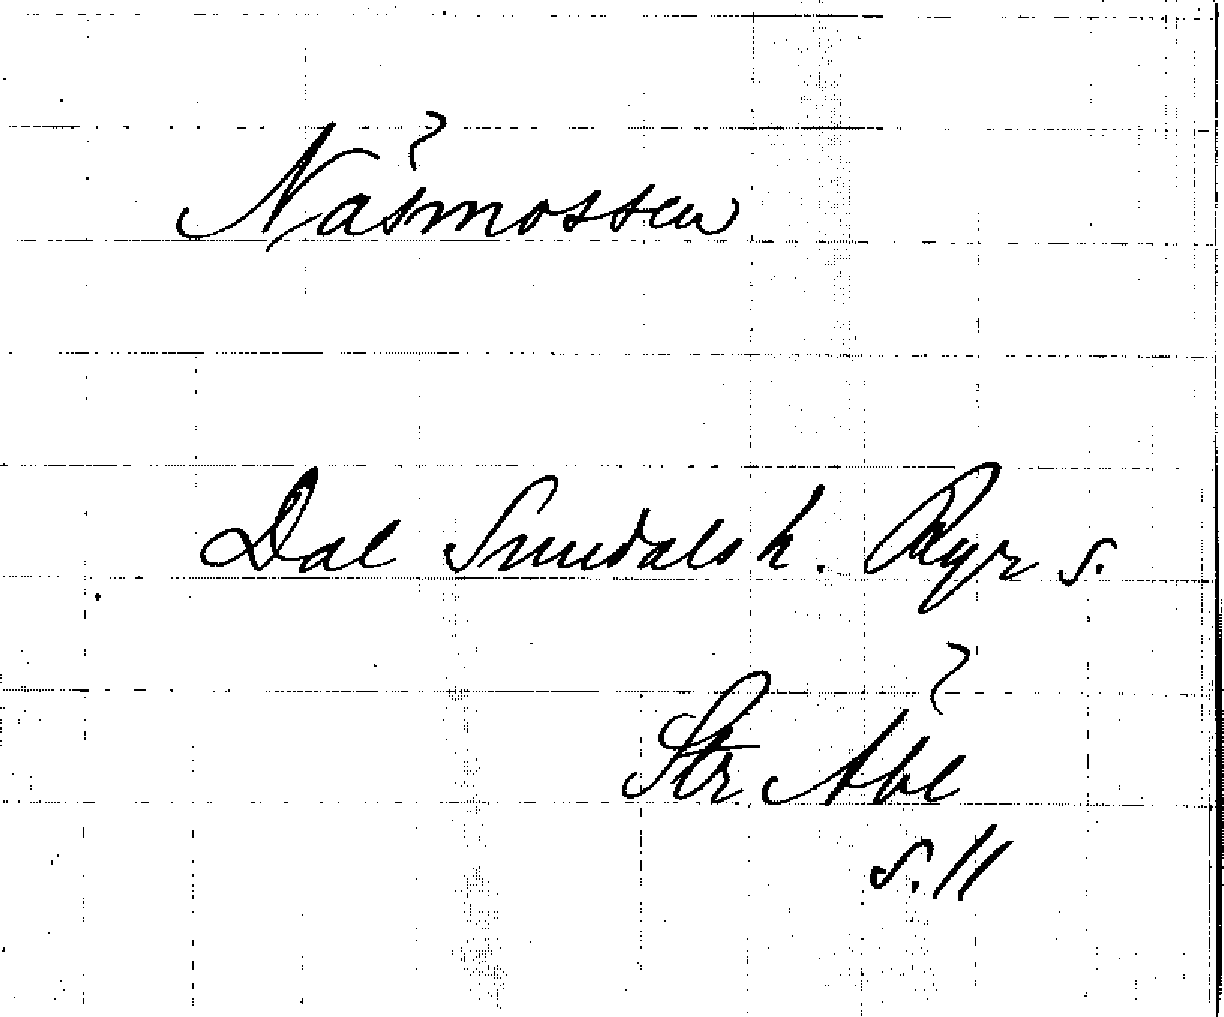 ?
Näsmossen
Dal Sundals h. Ryr s.
?
Str Abl
s. 11